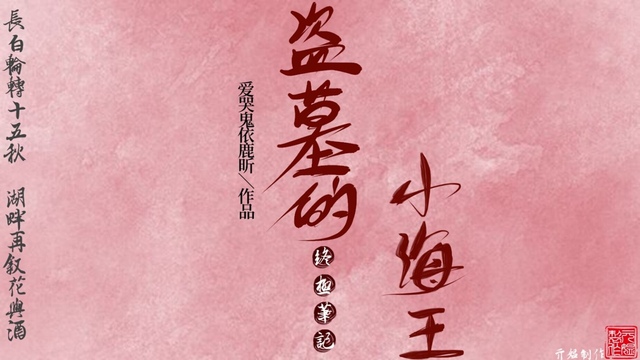 長白輪轉十五秋
湖畔再叙花與酒
爱哭鬼依鹿昕\作品
盗墓的
小海王
终極筆記
开焰制作